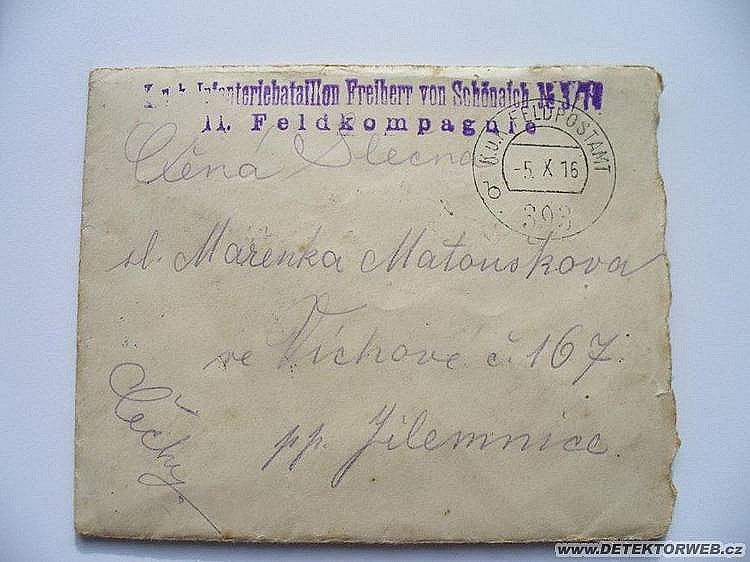 K.u.k. Infanteriebataillon Freiherr von Schönaich № 3/74
11. Feldkompagnie
K.u.K. FELDPOSTAMT
-5. X 16
b
393
Ctěná Slečna
sl. Mařenka Matouskova
ve Víchové č. 167.
pp. Jilemnice.
Čechy
www.DETEKTORWEB.cz